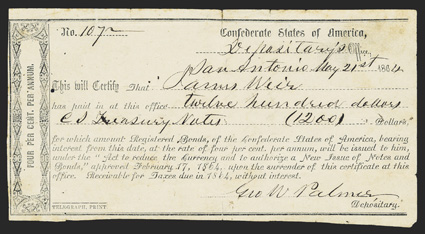 FOUR PER CENT. PER ANNUM.
No. 107
Confederate States of America,
Depositary's Office,
San Antonio May 21st 1864
This will Certify That James Weir
has paid in at this office twelve hundred dollars
C S Treasury Notes (1200) Dollars
for which amount Registered Bonds, of the Confederate States of America, bearing interest
from this date, at the rate of four per cent. per annum, will be issued to him,
under the "Act to reduce the Currency and to authorize a New Issue of Notes and
Bonds," approved February 17, 1864, upon the surrender of this certificate at this
office. Receivable for Taxes due in 1864, without interest.
Geo W Palmer
Depositary.
TELEGRAPH, PRINT